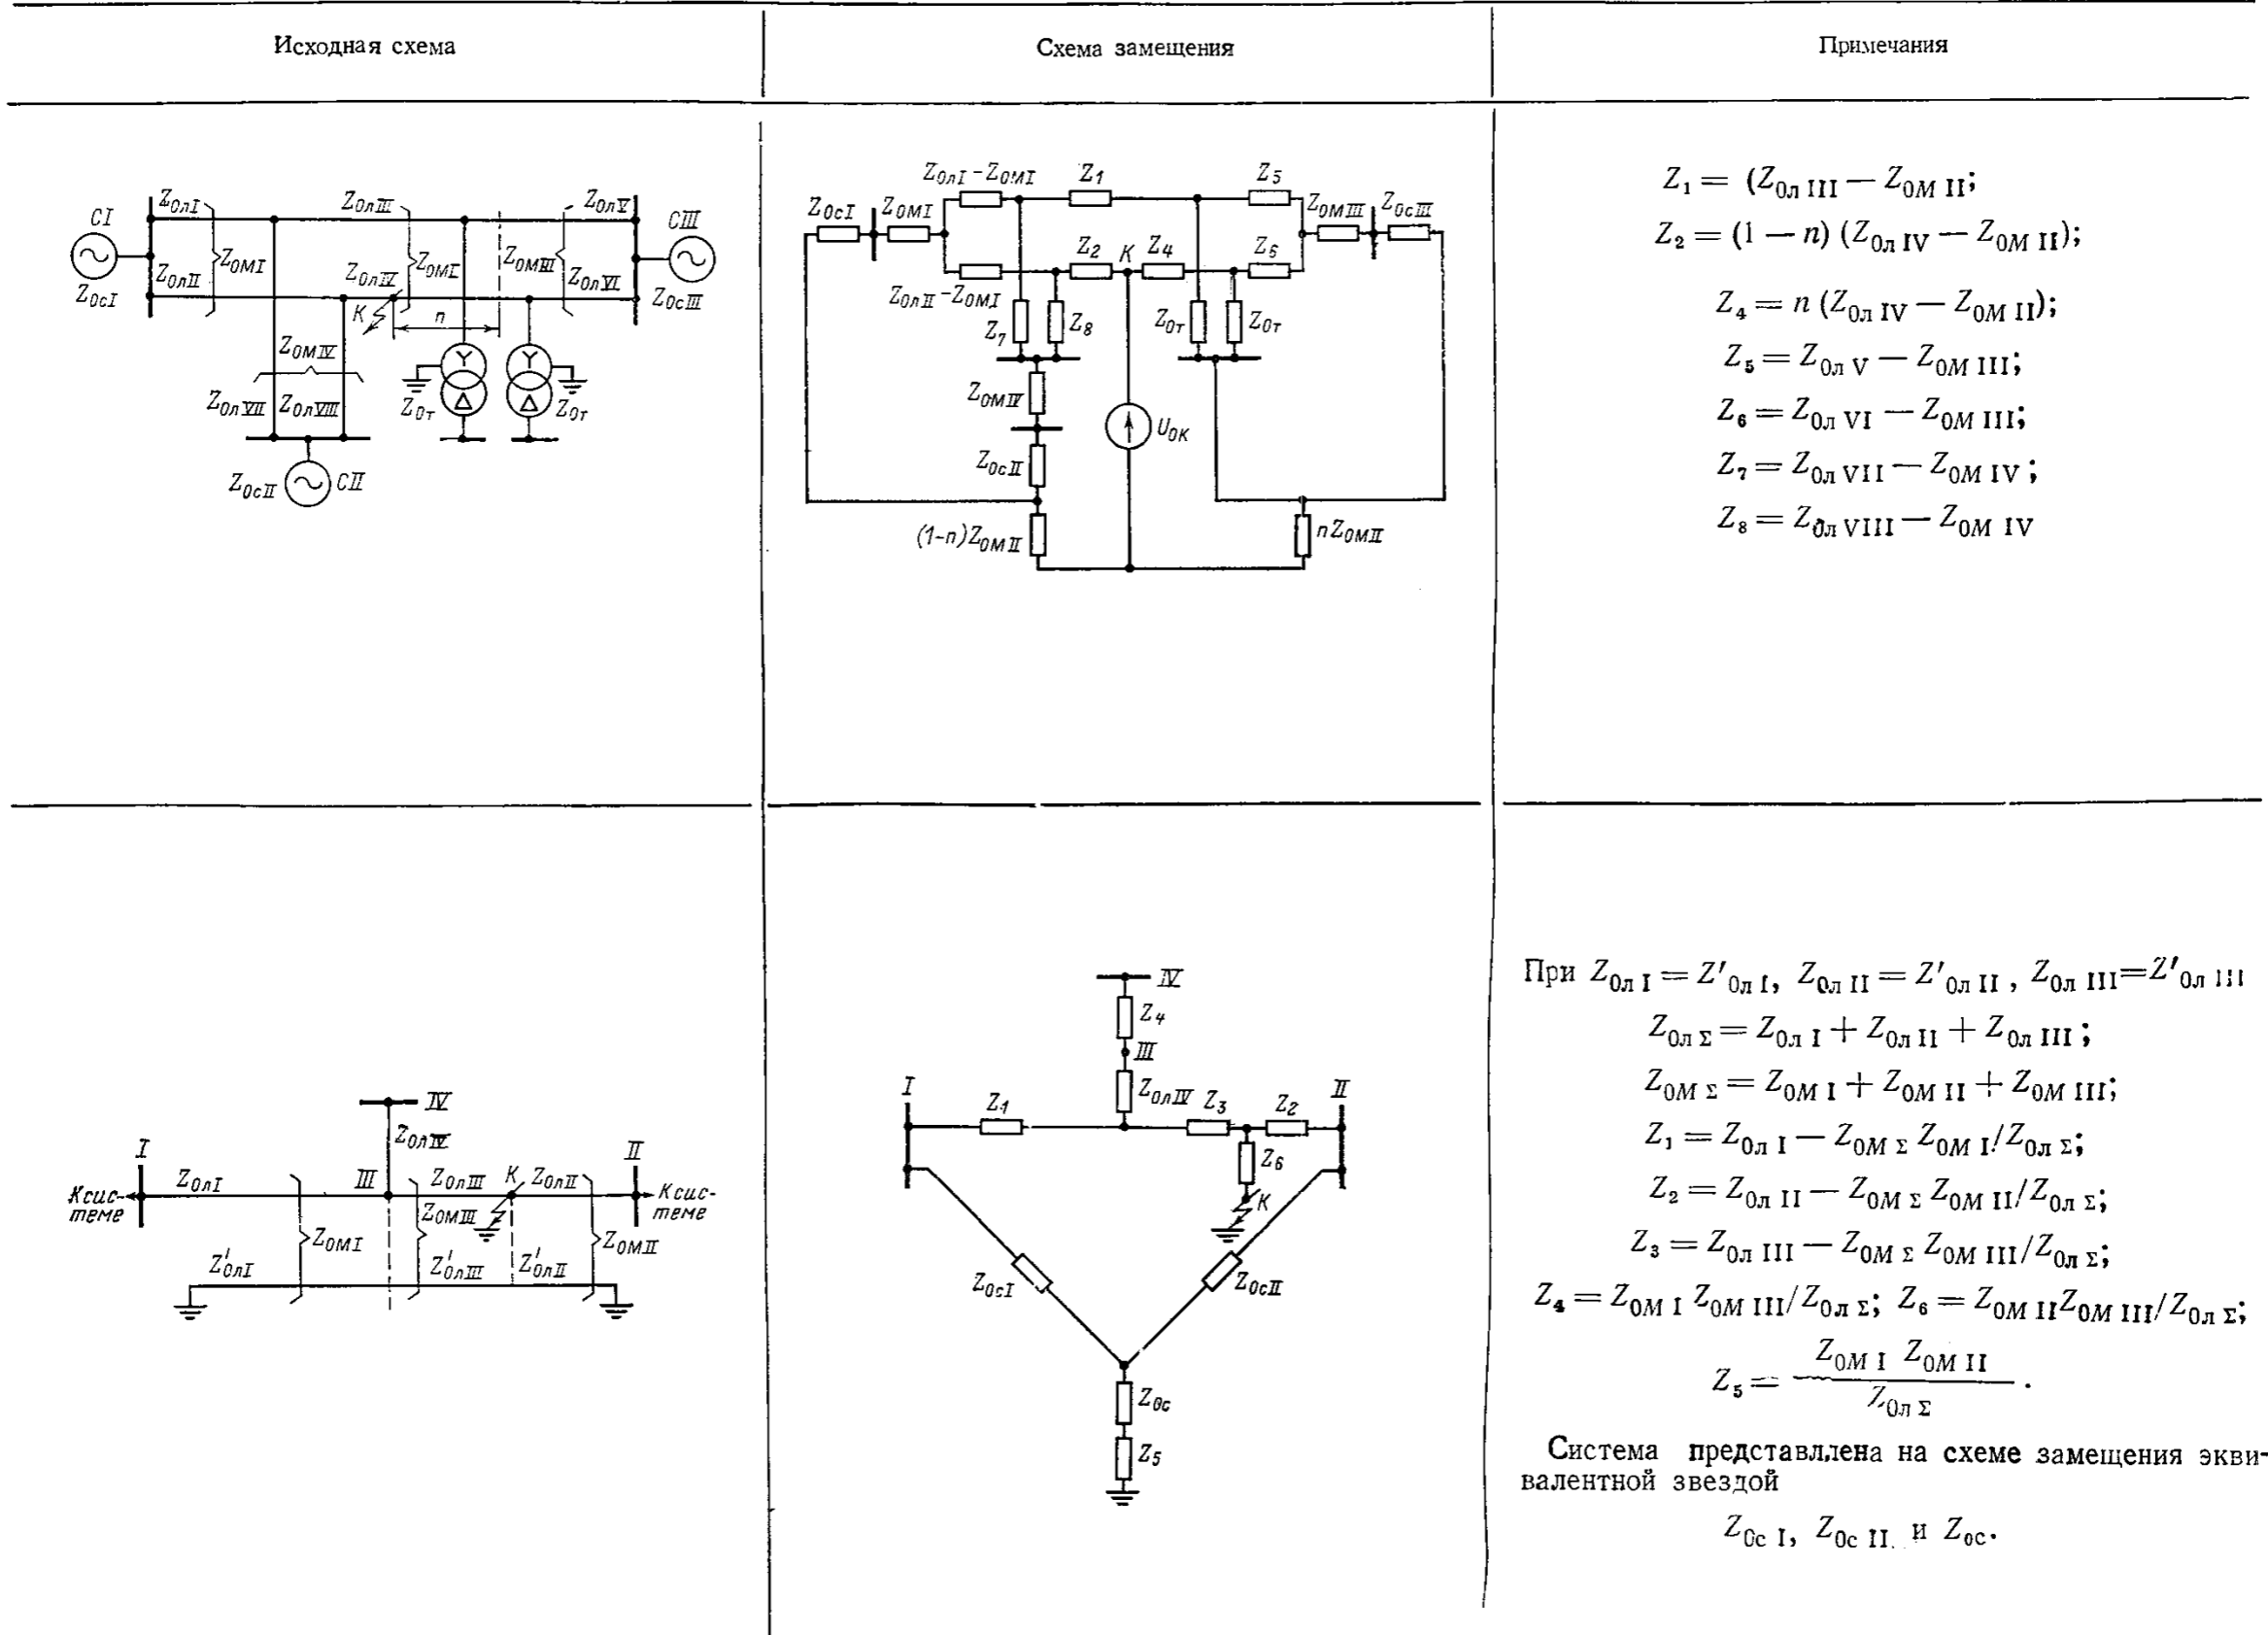 Исходная схема
Схема замещения
Примечания
CI
Z0лI
Z0лIII
Z0лV
CIII
Z0MI
Z0MI
Z0MIII
Z0лII
Z0лIV
Z0лVI
Z0cI
Z0cIII
K
n
Z0MIV
Z0лVII
Z0лVIII
Z0т
Z0т
Z0cII
CII
Z0лI-Z0MI
Z1
Z5
Z0cI
Z0MI
Z0MIII
Z0cIII
Z2
K
Z4
Z6
Z0лII-Z0MI
Z7
Z8
Z0т
Z0т
Z0MIV
U0K
Z0cII
(1-n)Z0MII
nZ0MII
Z1 = (Z0л III — Z0M II;
Z2 = (1 — n) (Z0л IV — Z0M II);
Z4 = n (Z0л IV — Z0M II);
Z5 = Z0л V — Z0M III;
Z6 = Z0л VI — Z0M III;
Z7 = Z0л VII — Z0M IV;
Z8 = Z0л VIII — Z0M IV
IV
Z0лIV
I
II
Z0лI
III
Z0лIII
K
Z0лII
К сис-
теме
К сис-
теме
Z0MIII
Z0MI
Z0MII
Z'0лI
Z'0лIII
Z'0лII
IV
Z4
III
I
Z0лIV
II
Z1
Z3
Z2
Z6
K
Z0cI
Z0cII
Z0c
Z5
При Z0л I = Z'0л I, Z0л II = Z'0л II, Z0л III = Z'0л III
Z0л Σ = Z0л I + Z0л II + Z0л III;
Z0M Σ = Z0M I + Z0M II + Z0M III;
Z1 = Z0л I — Z0M Σ Z0M I/Z0л Σ;
Z2 = Z0л II — Z0M Σ Z0M II/Z0л Σ;
Z3 = Z0л III — Z0M Σ Z0M III/Z0л Σ;
Z4 = Z0M I Z0M III/Z0л Σ; Z6 = Z0M II Z0M III/Z0л Σ;
Z5 = Z0M I Z0M II / Z0л Σ.
Система представлена на схеме замещения экви-
валентной звездой
Z0c I, Z0c II. и Z0c.